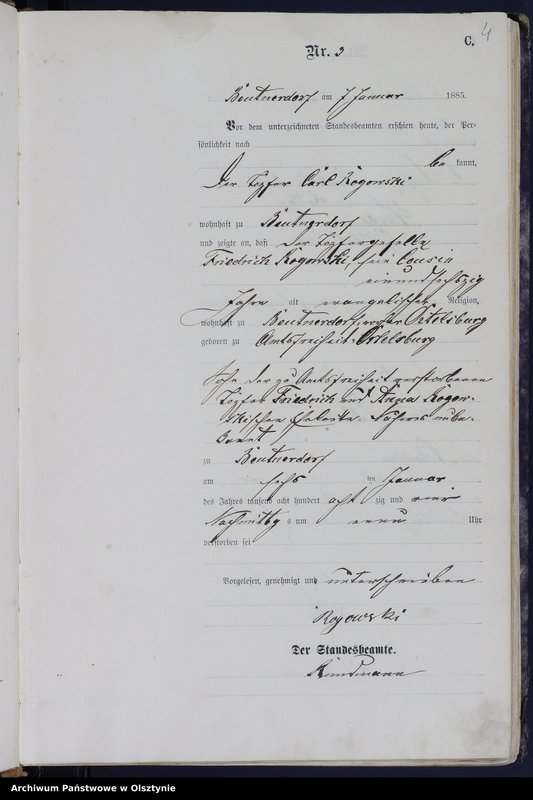 4
C.
Nr. 3
Beutnerdorf am 7 Januar 1885.
Vor dem unterzeichneten Standesbeamten erschien heute, der Per-
sönlichkeit nach
be kannt,
der Töpfer Carl Rogowski
wohnhaft zu Beutnerdorf
und zeigte an, daß der Töpfergeselle
Friedrich Rogowski, sein Cousin
einundsechszig
Jahre alt evangelischer Religion,
wohnhaft zu Beutnerdorf, Ortelsburg
geboren zu Amtsfreiheit Ortelsburg
Sohn der zu Amtsfreiheit verstorbenen
Töpfer Friedrich und Anna Rogow-
skischen Eheleute. Näheres unbe-
kannt
zu Beutnerdorf
am sechs ten Januar
des Jahres tausend acht hundert acht zig und vier
Nachmittag s um neun Uhr
verstorben sei
Vorgelesen, genehmigt und unterschrieben
Rogowski
Der Standesbeamte.
Archiwum Państwowe w Olsztynie